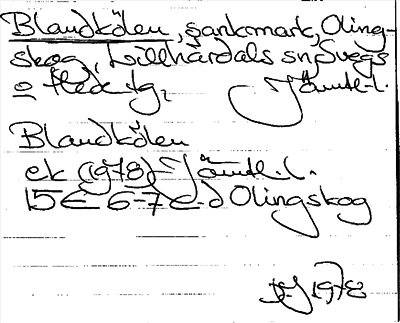 Blandkölen, sankmark, Oling-
skog, Lillhärdals sn, Svegs
o Hede tg, Jämtl.l.
Blandkölen
ek (1978) Jämtl.l.
15E 6-7 c-d Olingskog
1978